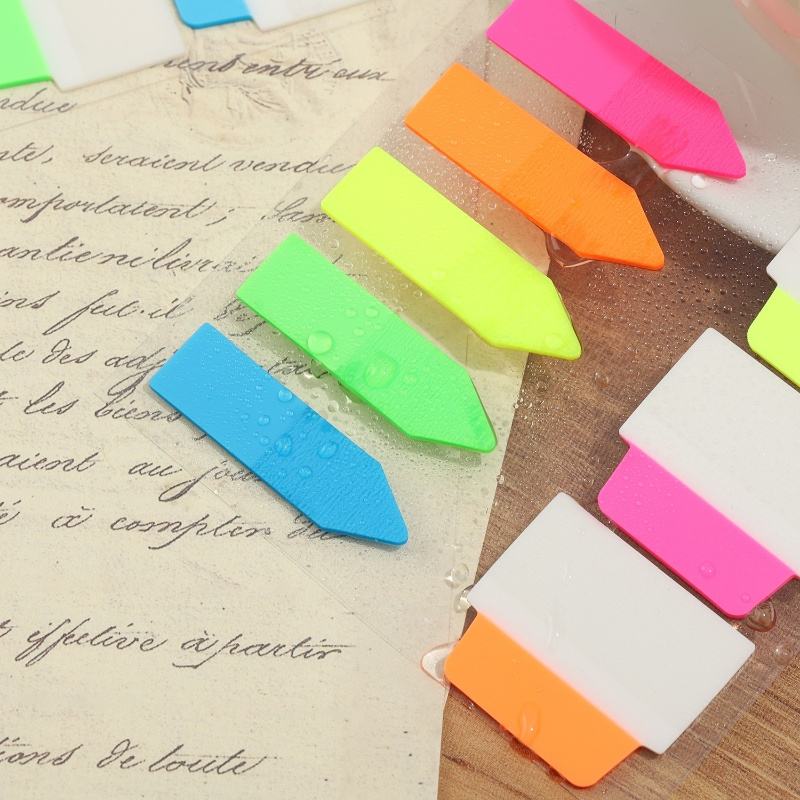 iens entrieux
ndue
nte, seraient vendu
mportaient ; San
antie ni livrai
ins fut-il de
le des adj
t les biens
aient au jou
é à compter du
t effective à partir
tions de toute